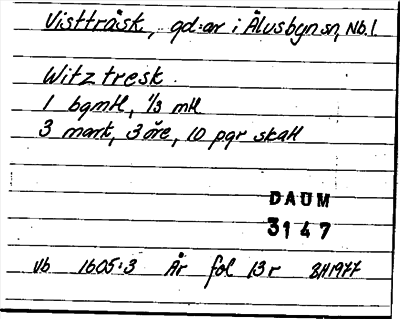 Vistträsk, gd:ar i Älvsbyn sn, Nb.l
Witz tresk.
1 bgmtl, 1/3 mtl
3 mark, 3 öre, 10 pgr skatt
DAUM
3147
Vb 1605:3 År fol 13r SH1977